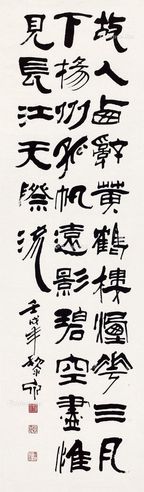 故人西辭黄鶴樓煙花三月
下揚州孤帆遠影碧空盡惟
見長江天際流
壬戌年